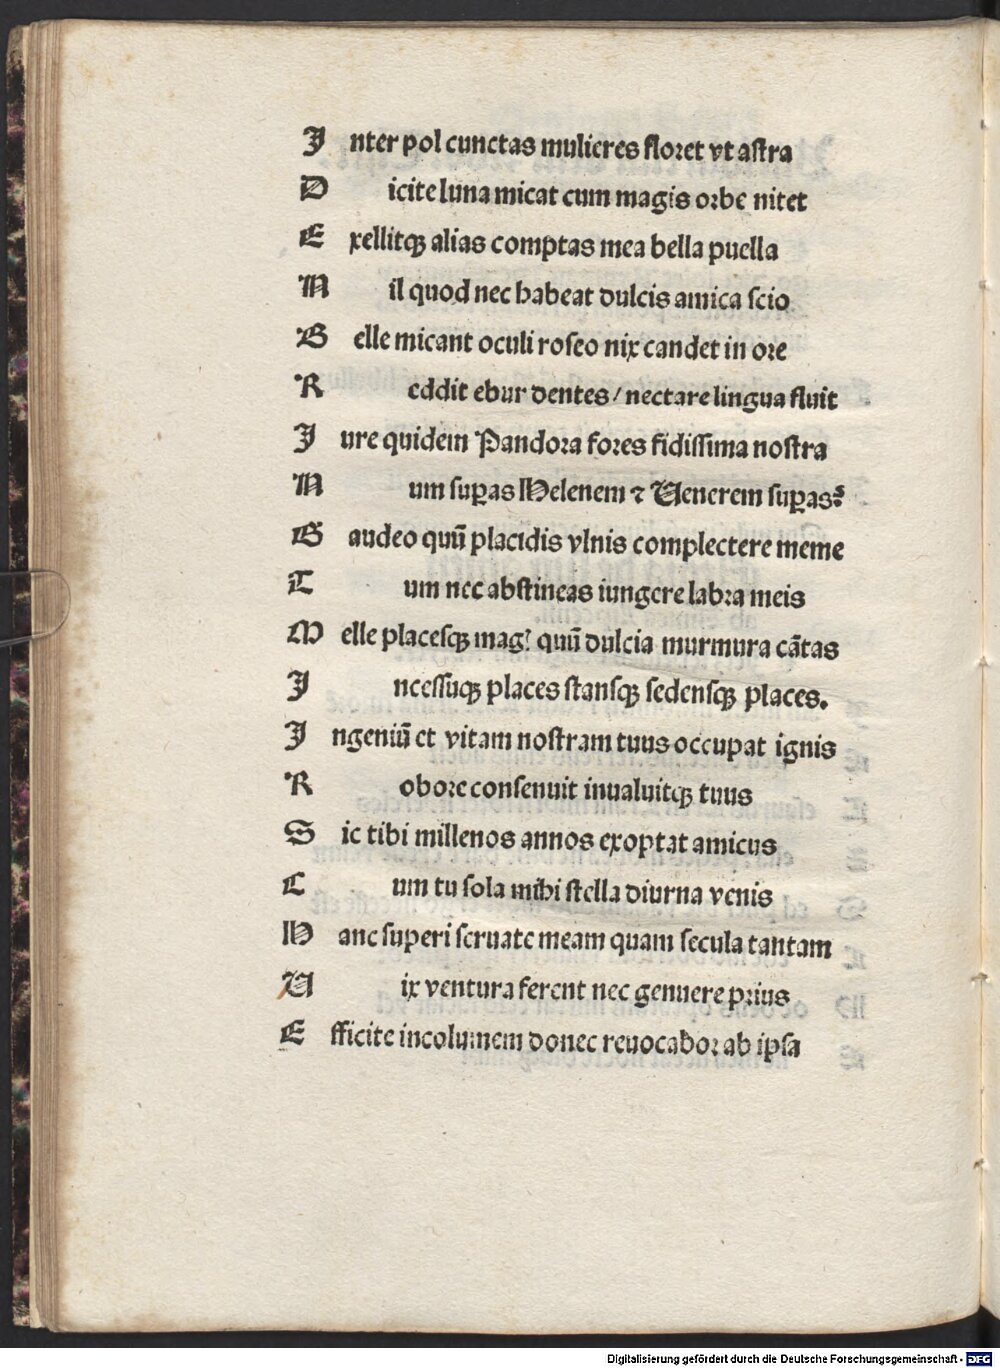 J nter pol cunctas mulieres floret vt astra
D icite luna micat cum magis orbe nitet
E xellitqꝫ alias comptas mea bella puella
N il quod nec habeat dulcis amica scio
B elle micant oculi roseo nix candet in ore
R eddit ebur dentes / nectare lingua fluit
J ure quidem Pandora fores fidissima nostra
N um suꝑas Helenem ⁊ Venerem suꝑas?
G audeo quū placidis vlnis complectere meme
T um nec abstineas iungere labra meis
M elle placesqꝫ mag? quū dulcia murmura cātas
J ncessuqꝫ places stansqꝫ sedensqꝫ places.
J ngeniū et vitam nostram tuus occupat ignis
R obore consenuit inualuitqꝫ tuus
S ic tibi millenos annos exoptat amicus
C um tu sola mihi stella diurna venis
H anc superi seruate meam quam secula tantam
V ix ventura ferent nec genuere prius
E fficite incolumem donec reuocabor ab ipsa
Digitalisierung gefördert durch die Deutsche Forschungsgemeinschaft - DFG